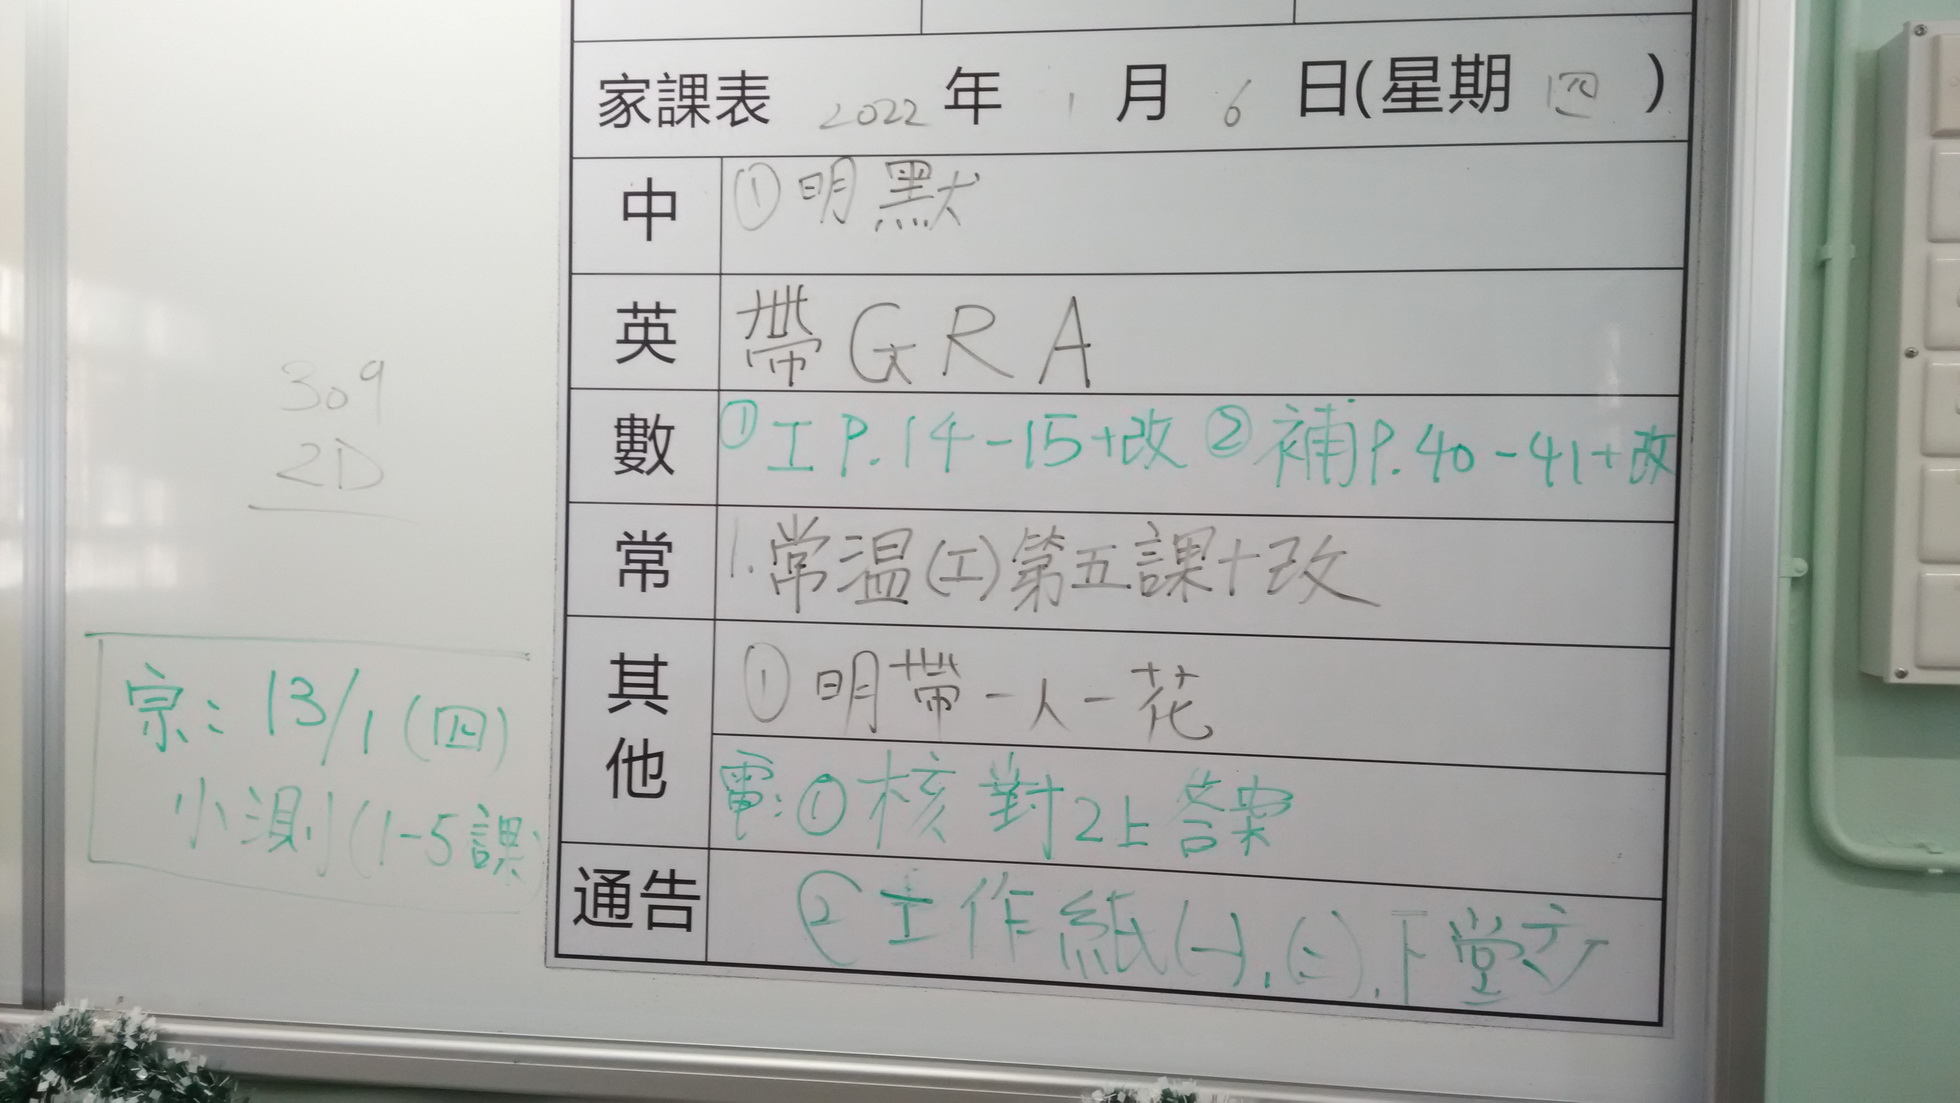 家課表 2022 年 1 月 6 日(星期 四 )
中 ①明默
英 帶GRA
數 ①工P.14-15+改 ②補P.40-41+改
常 1.常温(工)第五課+改
其他 ①明帶一人一花
電:①核對2上答案
通告 ②工作紙(一),(二),下堂交
309
2D
宗: 13/1 (四)
小測(1-5課)